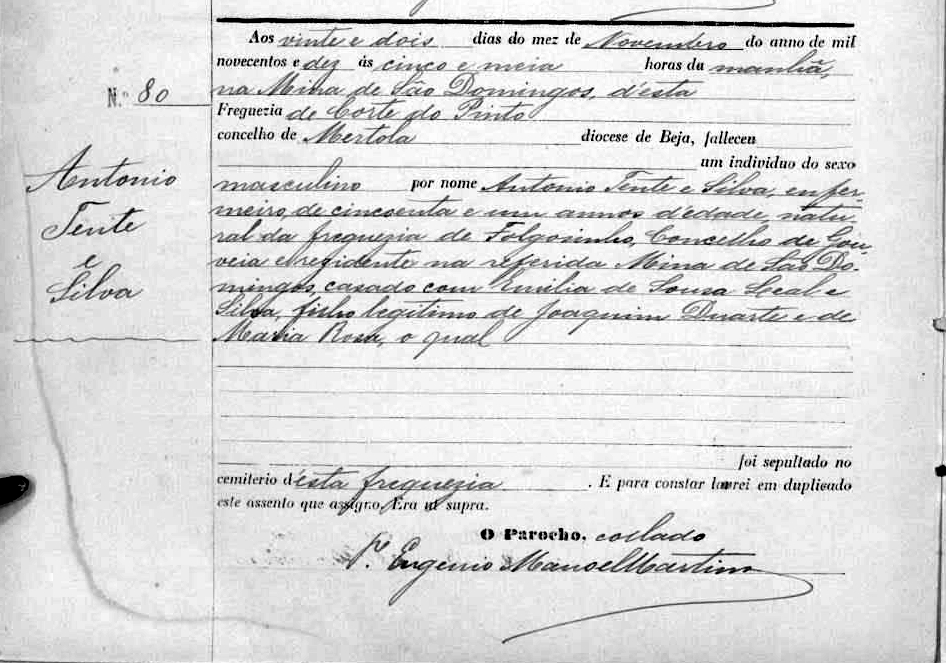 Aos vinte e dois dias do mez de Novembro do anno de mil
novecentos e dez ás cinco e meia horas da manhã,
na Mina de São Domingos, d'esta
Nº 80
Freguezia de Corte do Pinto
concelho de Mertola diocese de Beja, falleceu
um individuo do sexo
Antonio
Tente
e
Silva
masculino por nome Antonio Tente e Silva, enfer-
meiro, de cincoenta e um annos d'edade, natu-
ral da freguezia de Folgosinho, Concelho de Gou-
veia e residente na referida Mina de São Do-
mingos, casado com Emilia de Sousa Leal e
Silva, filho legitimo de Joaquim Duarte e de
Maria Rosa, o qual
foi sepultado no
cemiterio d'esta freguezia. E para constar lavrei em duplicado
este assento que assigno. Era ut supra.
O Parocho, collado
Pe Eugenio Manoel Martins